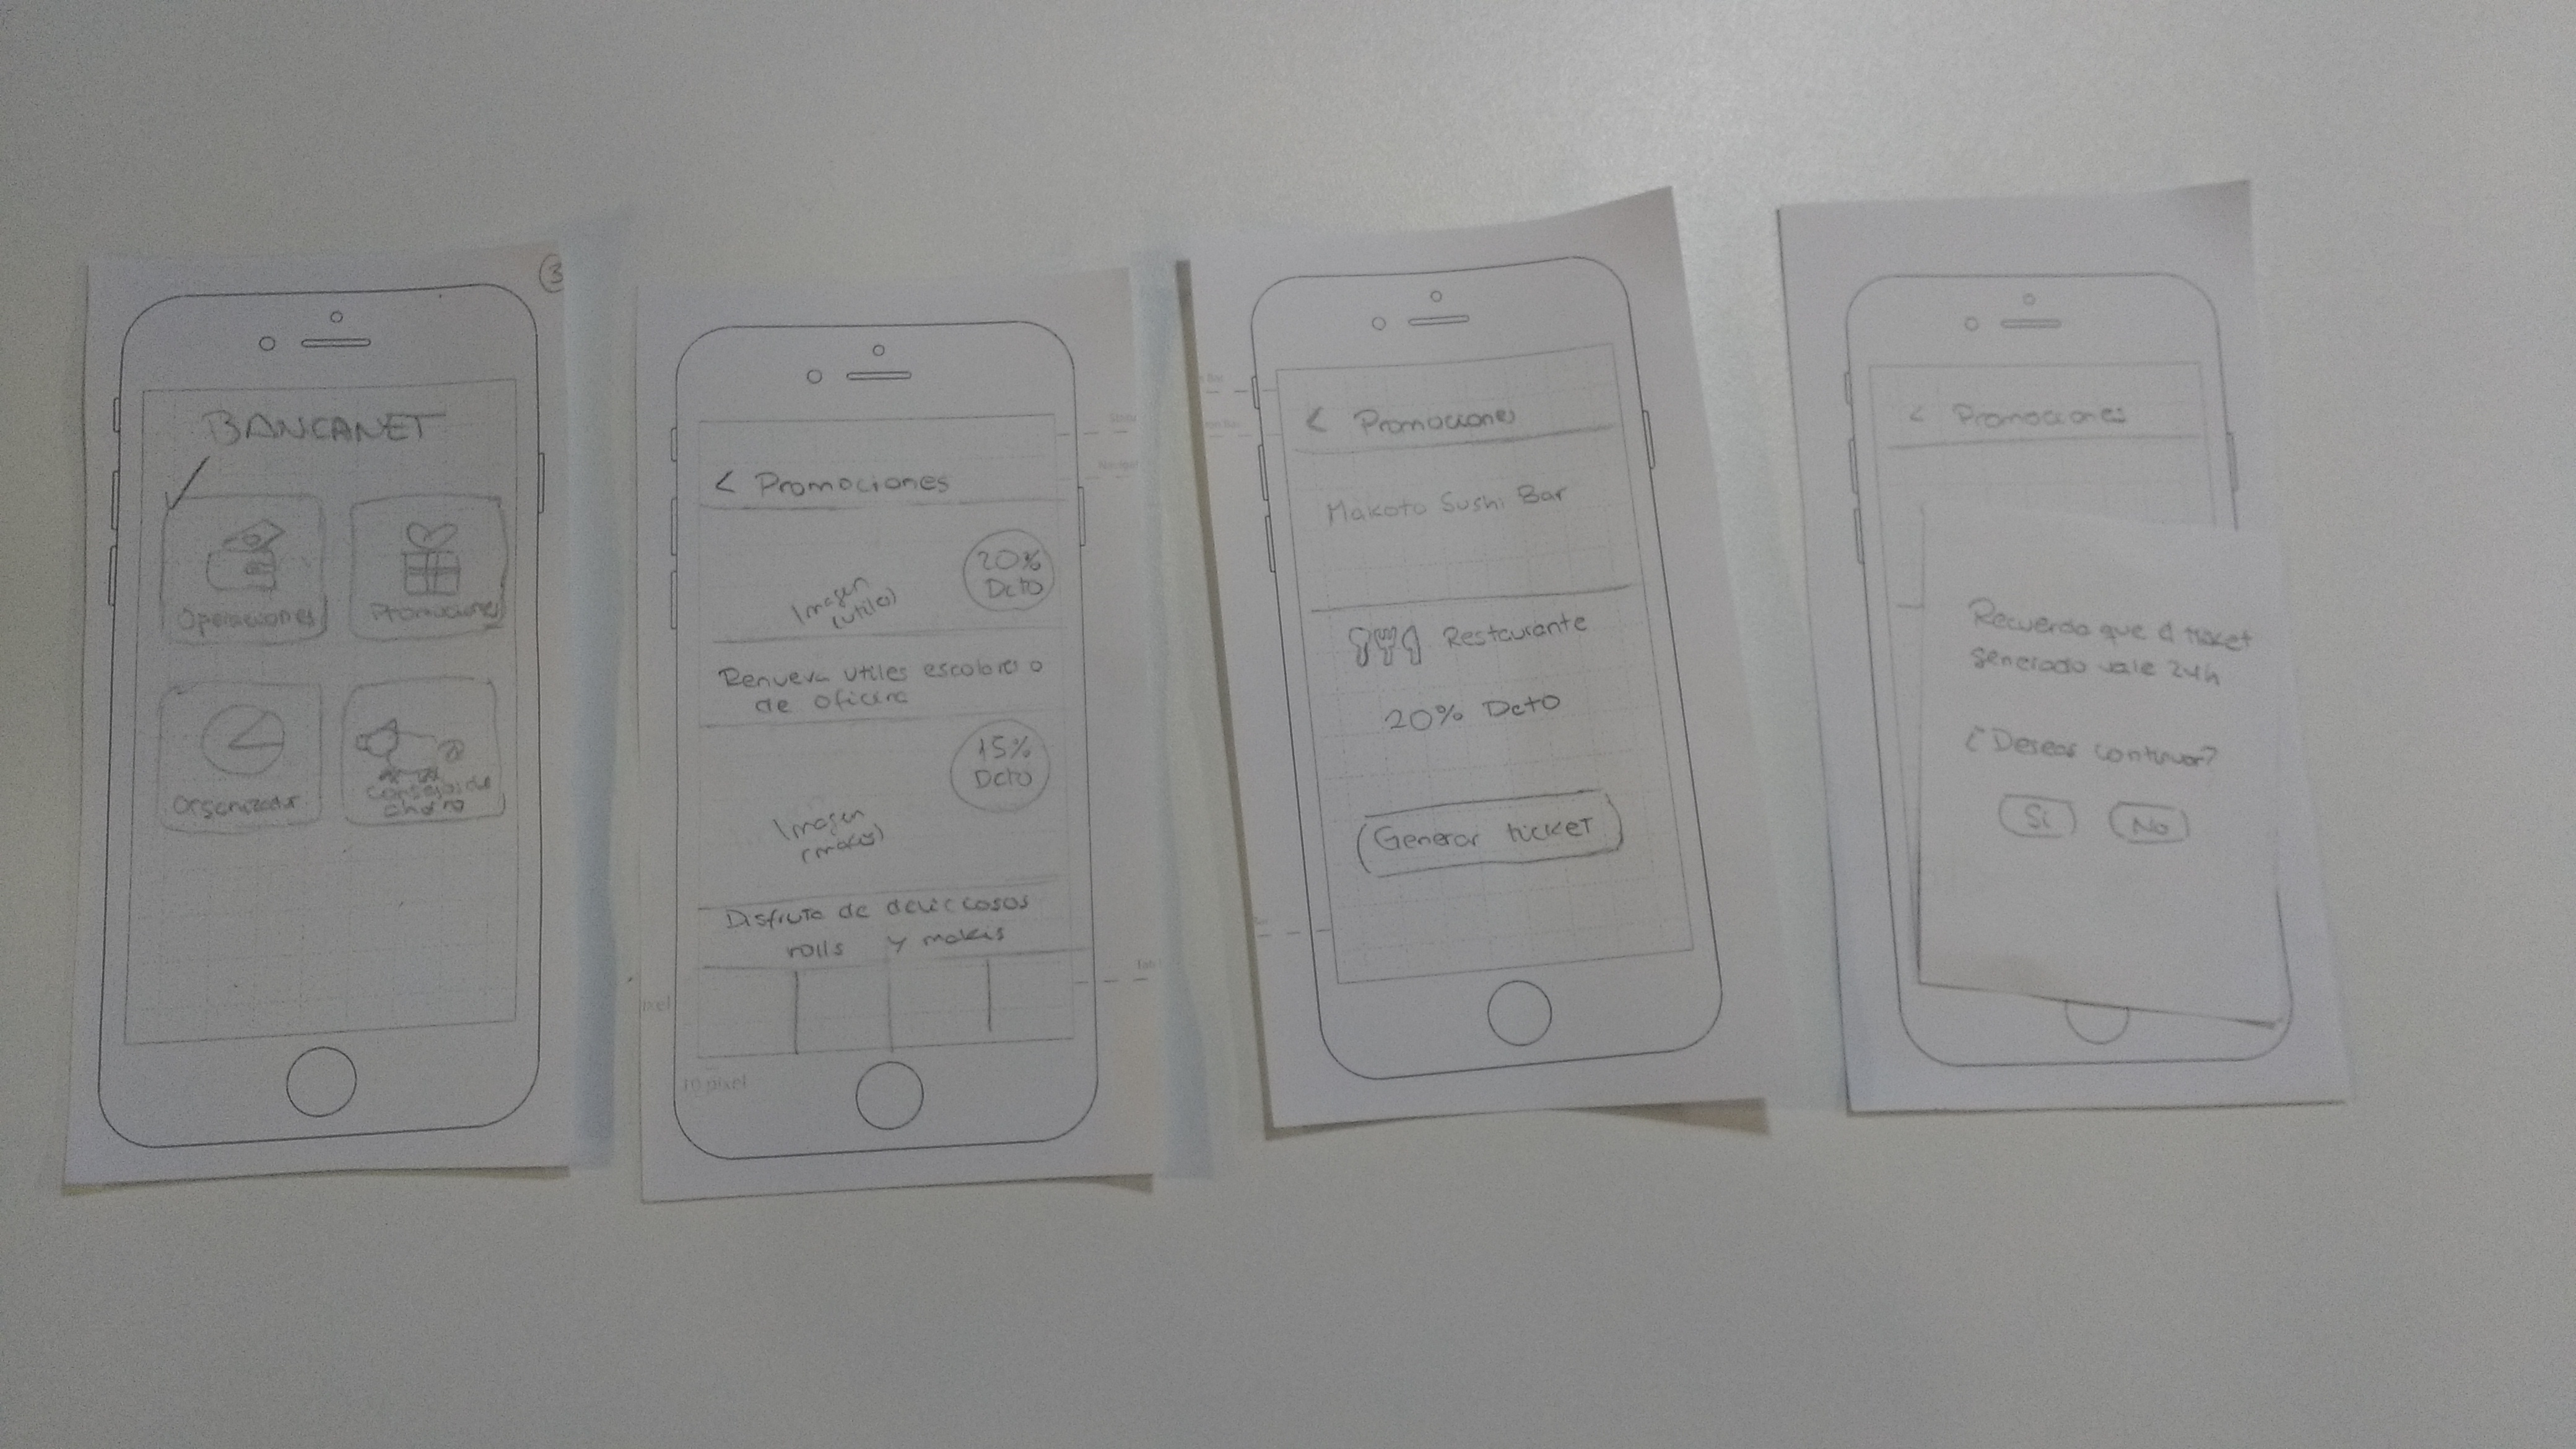 3
BANCANET
Operaciones
Promociones
Organizador
Consejos del
ahorro
< Promociones
20%
Dcto
Imagen
(utiles)
Renueva utiles escolares o
de oficina
15%
Dcto
Imagen
(makis)
Disfruta de deliciosos
rolls y makis
10 pixel
< Promociones
Makoto Sushi Bar
Restaurante
20% Dcto
Generar ticket
< Promociones
Recuerda que el ticket
generado vale 24h
¿Deseas continuar?
Si
No